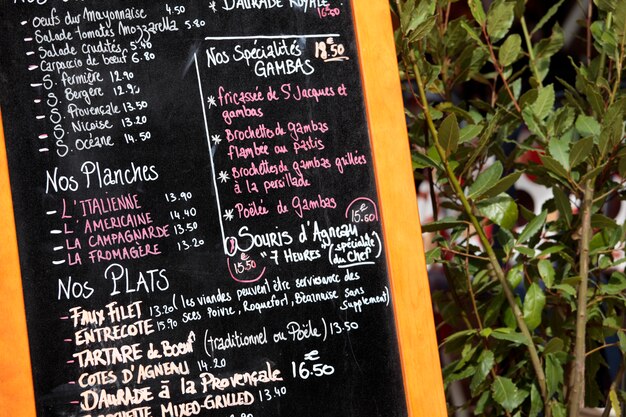 DAURADE ROYALE 16.50
OEuf dur Mayonnaise 4.50
Salade tomates MOZZARELLA
Salade crudités 5.40
Carpaccio de boeuf 6.80
S. fermière 12.90
S. Bergère 12.90
S. Provençale 13.50
S. Niçoise 13.20
S. Océane 14.50
Nos Planches
L'ITALIENNE 13.90
L'AMERICAINE 14.40
LA CAMPAGNARDE 13.50
LA FROMAGÈRE 13.20
Nos Spécialités 18.50
GAMBAS
* fricassée de St Jacques et
gambas
* Brochettes de gambas
flambée au pastis
* Brochettes de gambas grillées
à la persillade
* Poêlée de Gambas
15.50€
SOURIS d'Agneau
7 HEURES (spécialité
du Chef)
15.50
Nos PLATS
FAUX FILET 13.20 (les viandes peuvent être servies avec des
ENTRECOTE 15.90 sauces Poivre, Roquefort, Béarnaise sans
supplément)
TARTARE de Boeuf (traditionnel ou Poêlé) 13.50
COTES D'AGNEAU 14.20
DAURADE à la Provençale 16.50€
MIXED-GRILLED